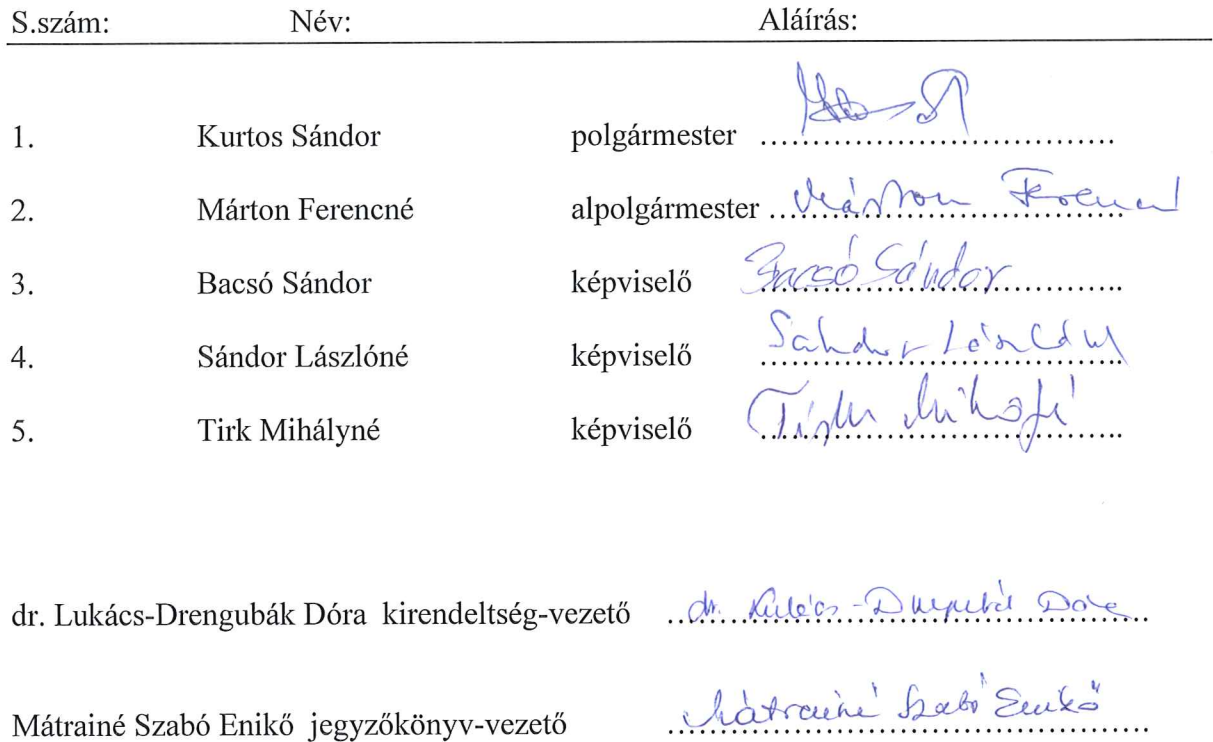 S.szám: Név: Aláírás:
1. Kurtos Sándor polgármester ..................................
2. Márton Ferencné alpolgármester .................................. Márton Ferencné
3. Bacsó Sándor képviselő .................................. Bacsó Sándor
4. Sándor Lászlóné képviselő .................................. Sándor Lászlóné
5. Tirk Mihályné képviselő .................................. Tirk Mihályné
dr. Lukács-Drengubák Dóra kirendeltség-vezető .................................. dr. Lukács-Drengubák Dóra
Mátrainé Szabó Enikő jegyzőkönyv-vezető .................................. Mátrainé Szabó Enikő